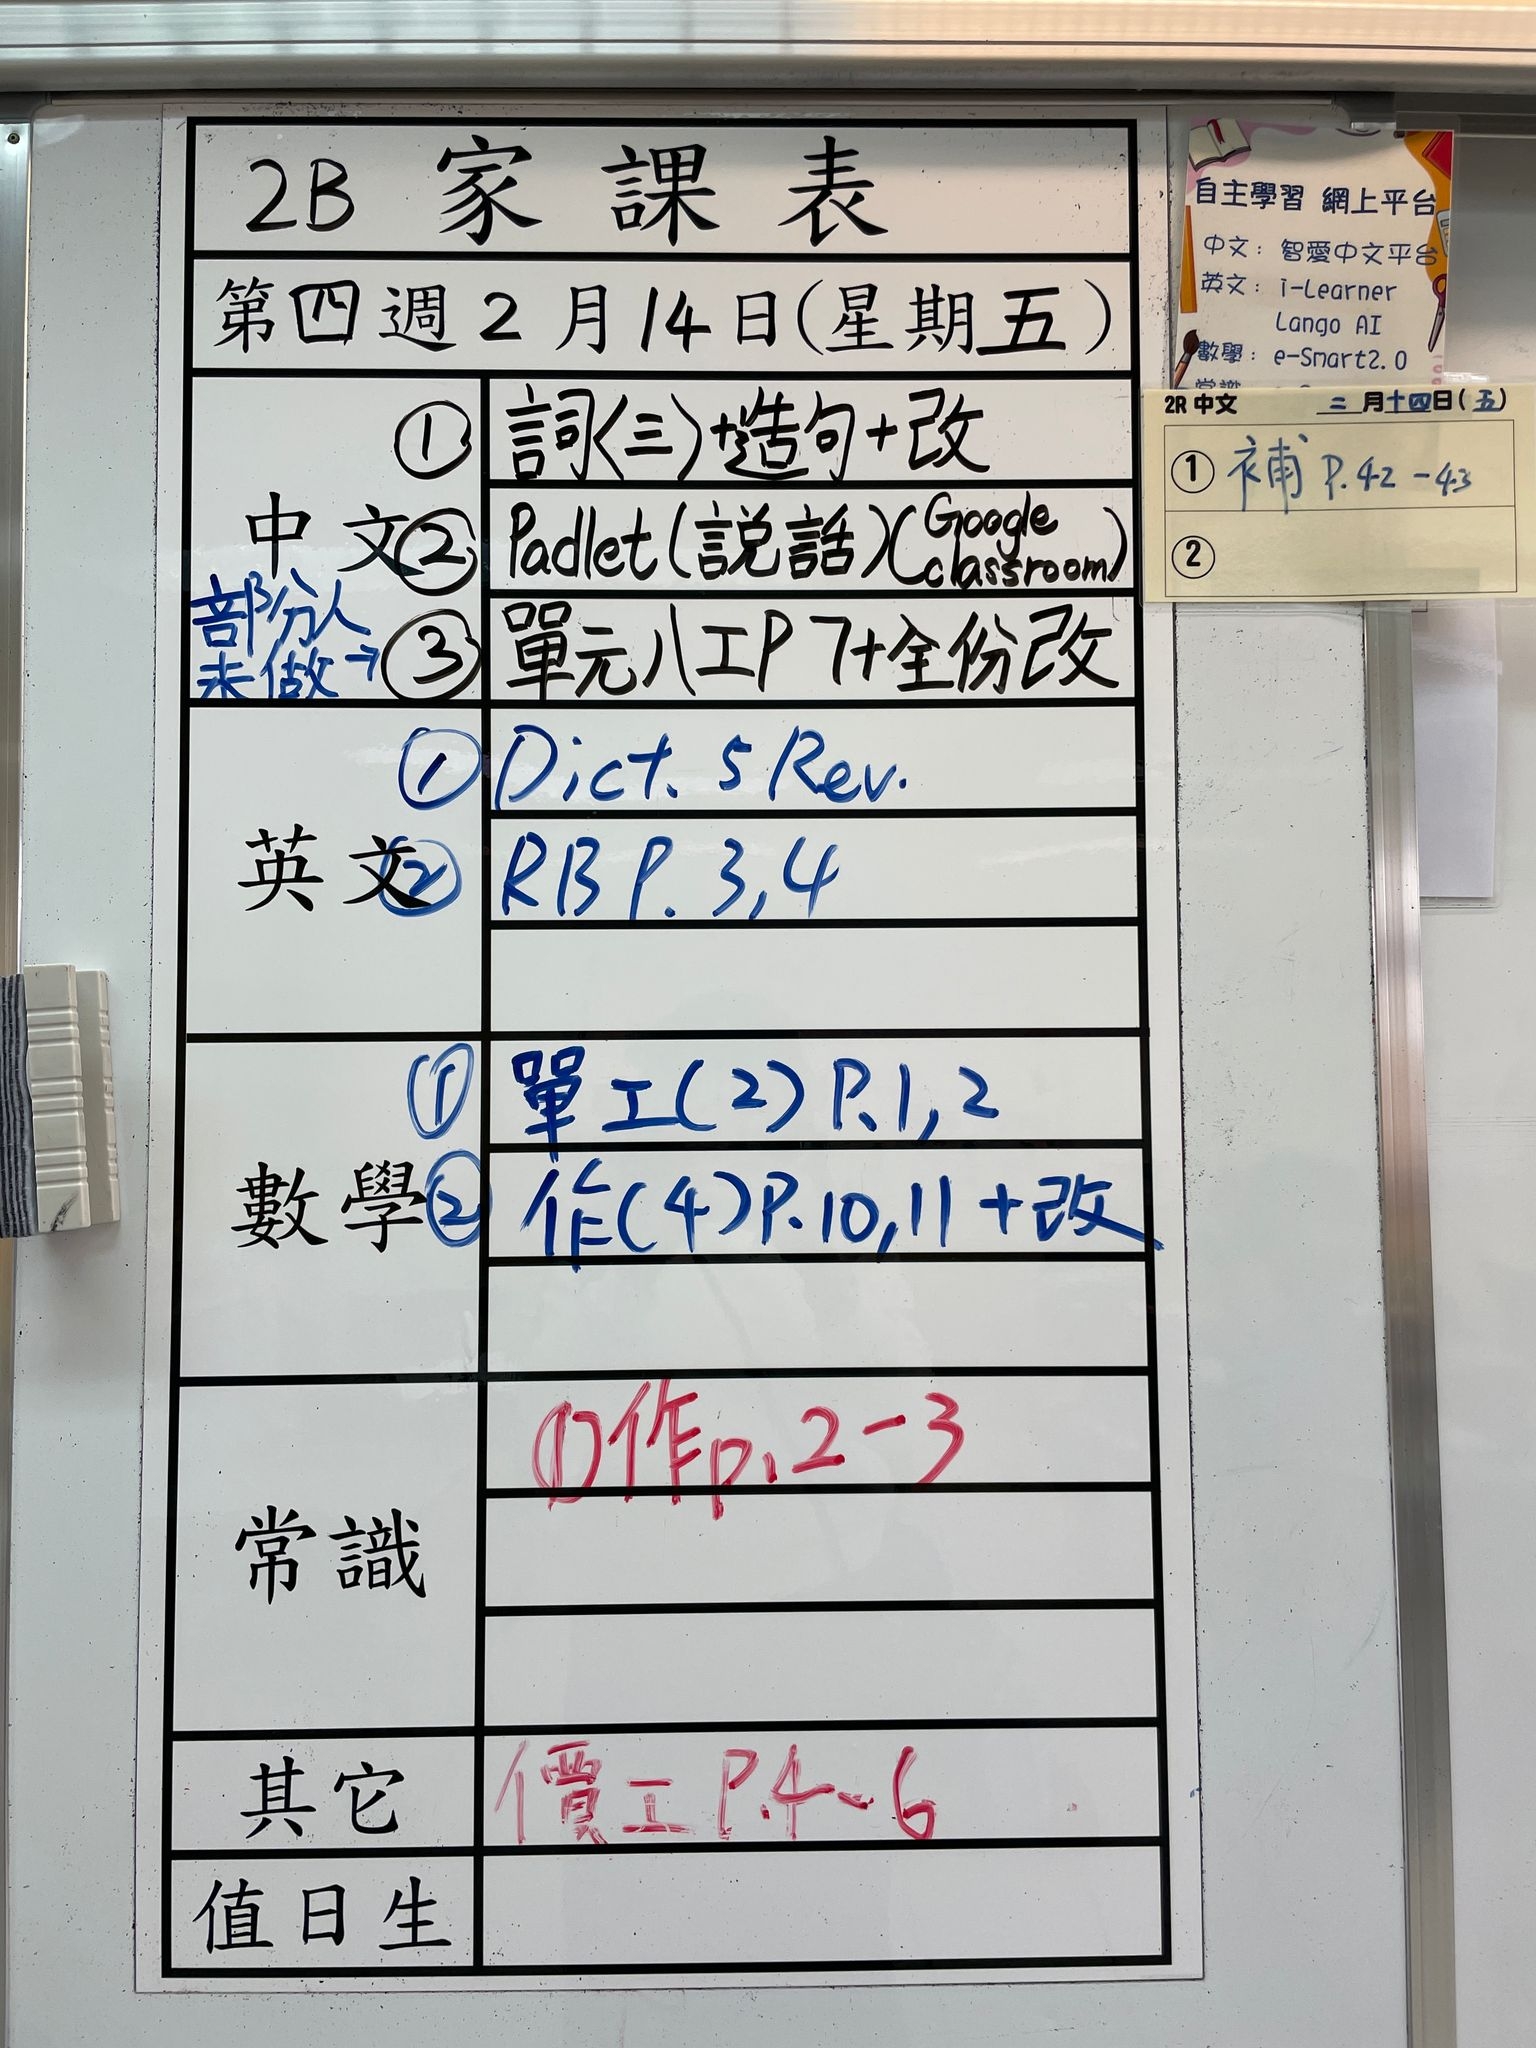 2B 家課表
第四週 2月14日(星期五)
中文
① 詞(三)+造句+改
② Padlet(説話)(Google classroom)
部分人未做→③ 單元八工P7+全份改
英文
① Dict. 5 Rev.
② RB P. 3,4
數學
① 單工(2) P.1,2
② 作(4)P.10,11+改
常識
① 作p.2-3
其它
價工P.4-6
值日生
自主學習 網上平台
中文：智愛中文平台
英文：i-Learner
Lango AI
數學：e-Smart2.0
2R 中文 二月十四日(五)
① 補 P.42-43
②